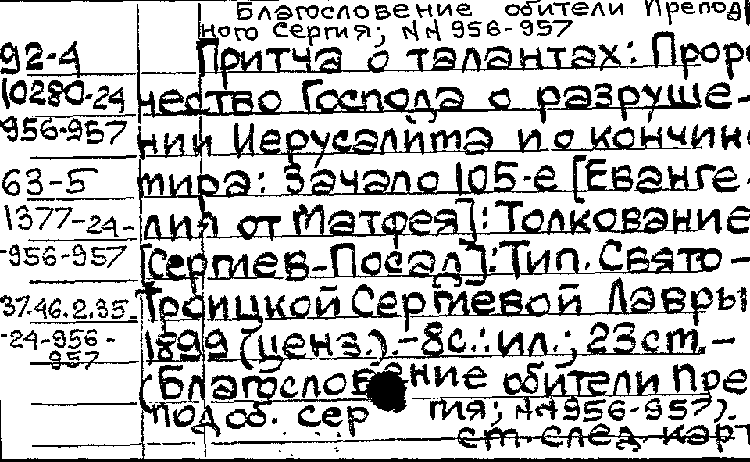 Благословение обители Препод
ного Сергия; NN 956-957
92-4 Притча о талантах: Прор
10280-24 чество Господа о разруше-
956-957 нии Иерусалима и о кончин
63-5 мира: Зачало 105-е [Еванге-
1377-24- лия от Матфея]: Толкование
-956-957 [Сергиев-Посад]: Тип. Свято-
37.46.2.35. Троицкой Сергиевой Лавры
-24-956- 1899 (ценз.).-8с.: ил.; 23ст.-
957 (Благословение обители Пре
подоб. Сер гия; NN 956-957).
ст. след. карт